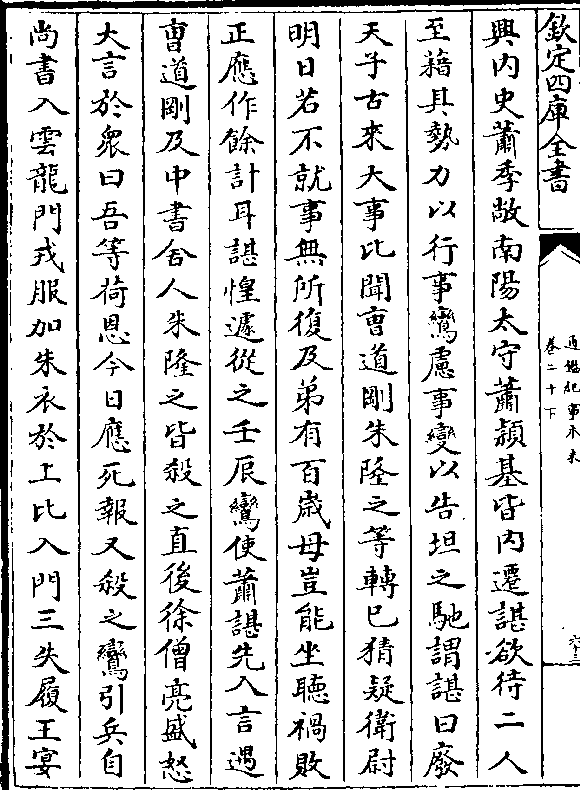 欽定四庫全書
通鑑紀事本末
卷二十下
六十三
興内史蕭季敞南陽太守蕭潁基皆内遷諶欲待二人
至藉其勢力以行事鸞慮事變以告坦之馳謂諶曰廢
天子古來大事比聞曹道剛朱隆之等轉已猜疑衛尉
明日若不就事無所復及弟有百歲母豈能坐聽禍敗
正應作餘計耳諶惶遽從之壬辰鸞使蕭諶先入宫遇
曹道剛及中書舍人朱隆之皆殺之直後徐僧亮盛怒
大言於衆曰吾等荷恩今日應死報又殺之鸞引兵自
尚書入雲龍門戎服加朱衣於上比入門三失履王宴